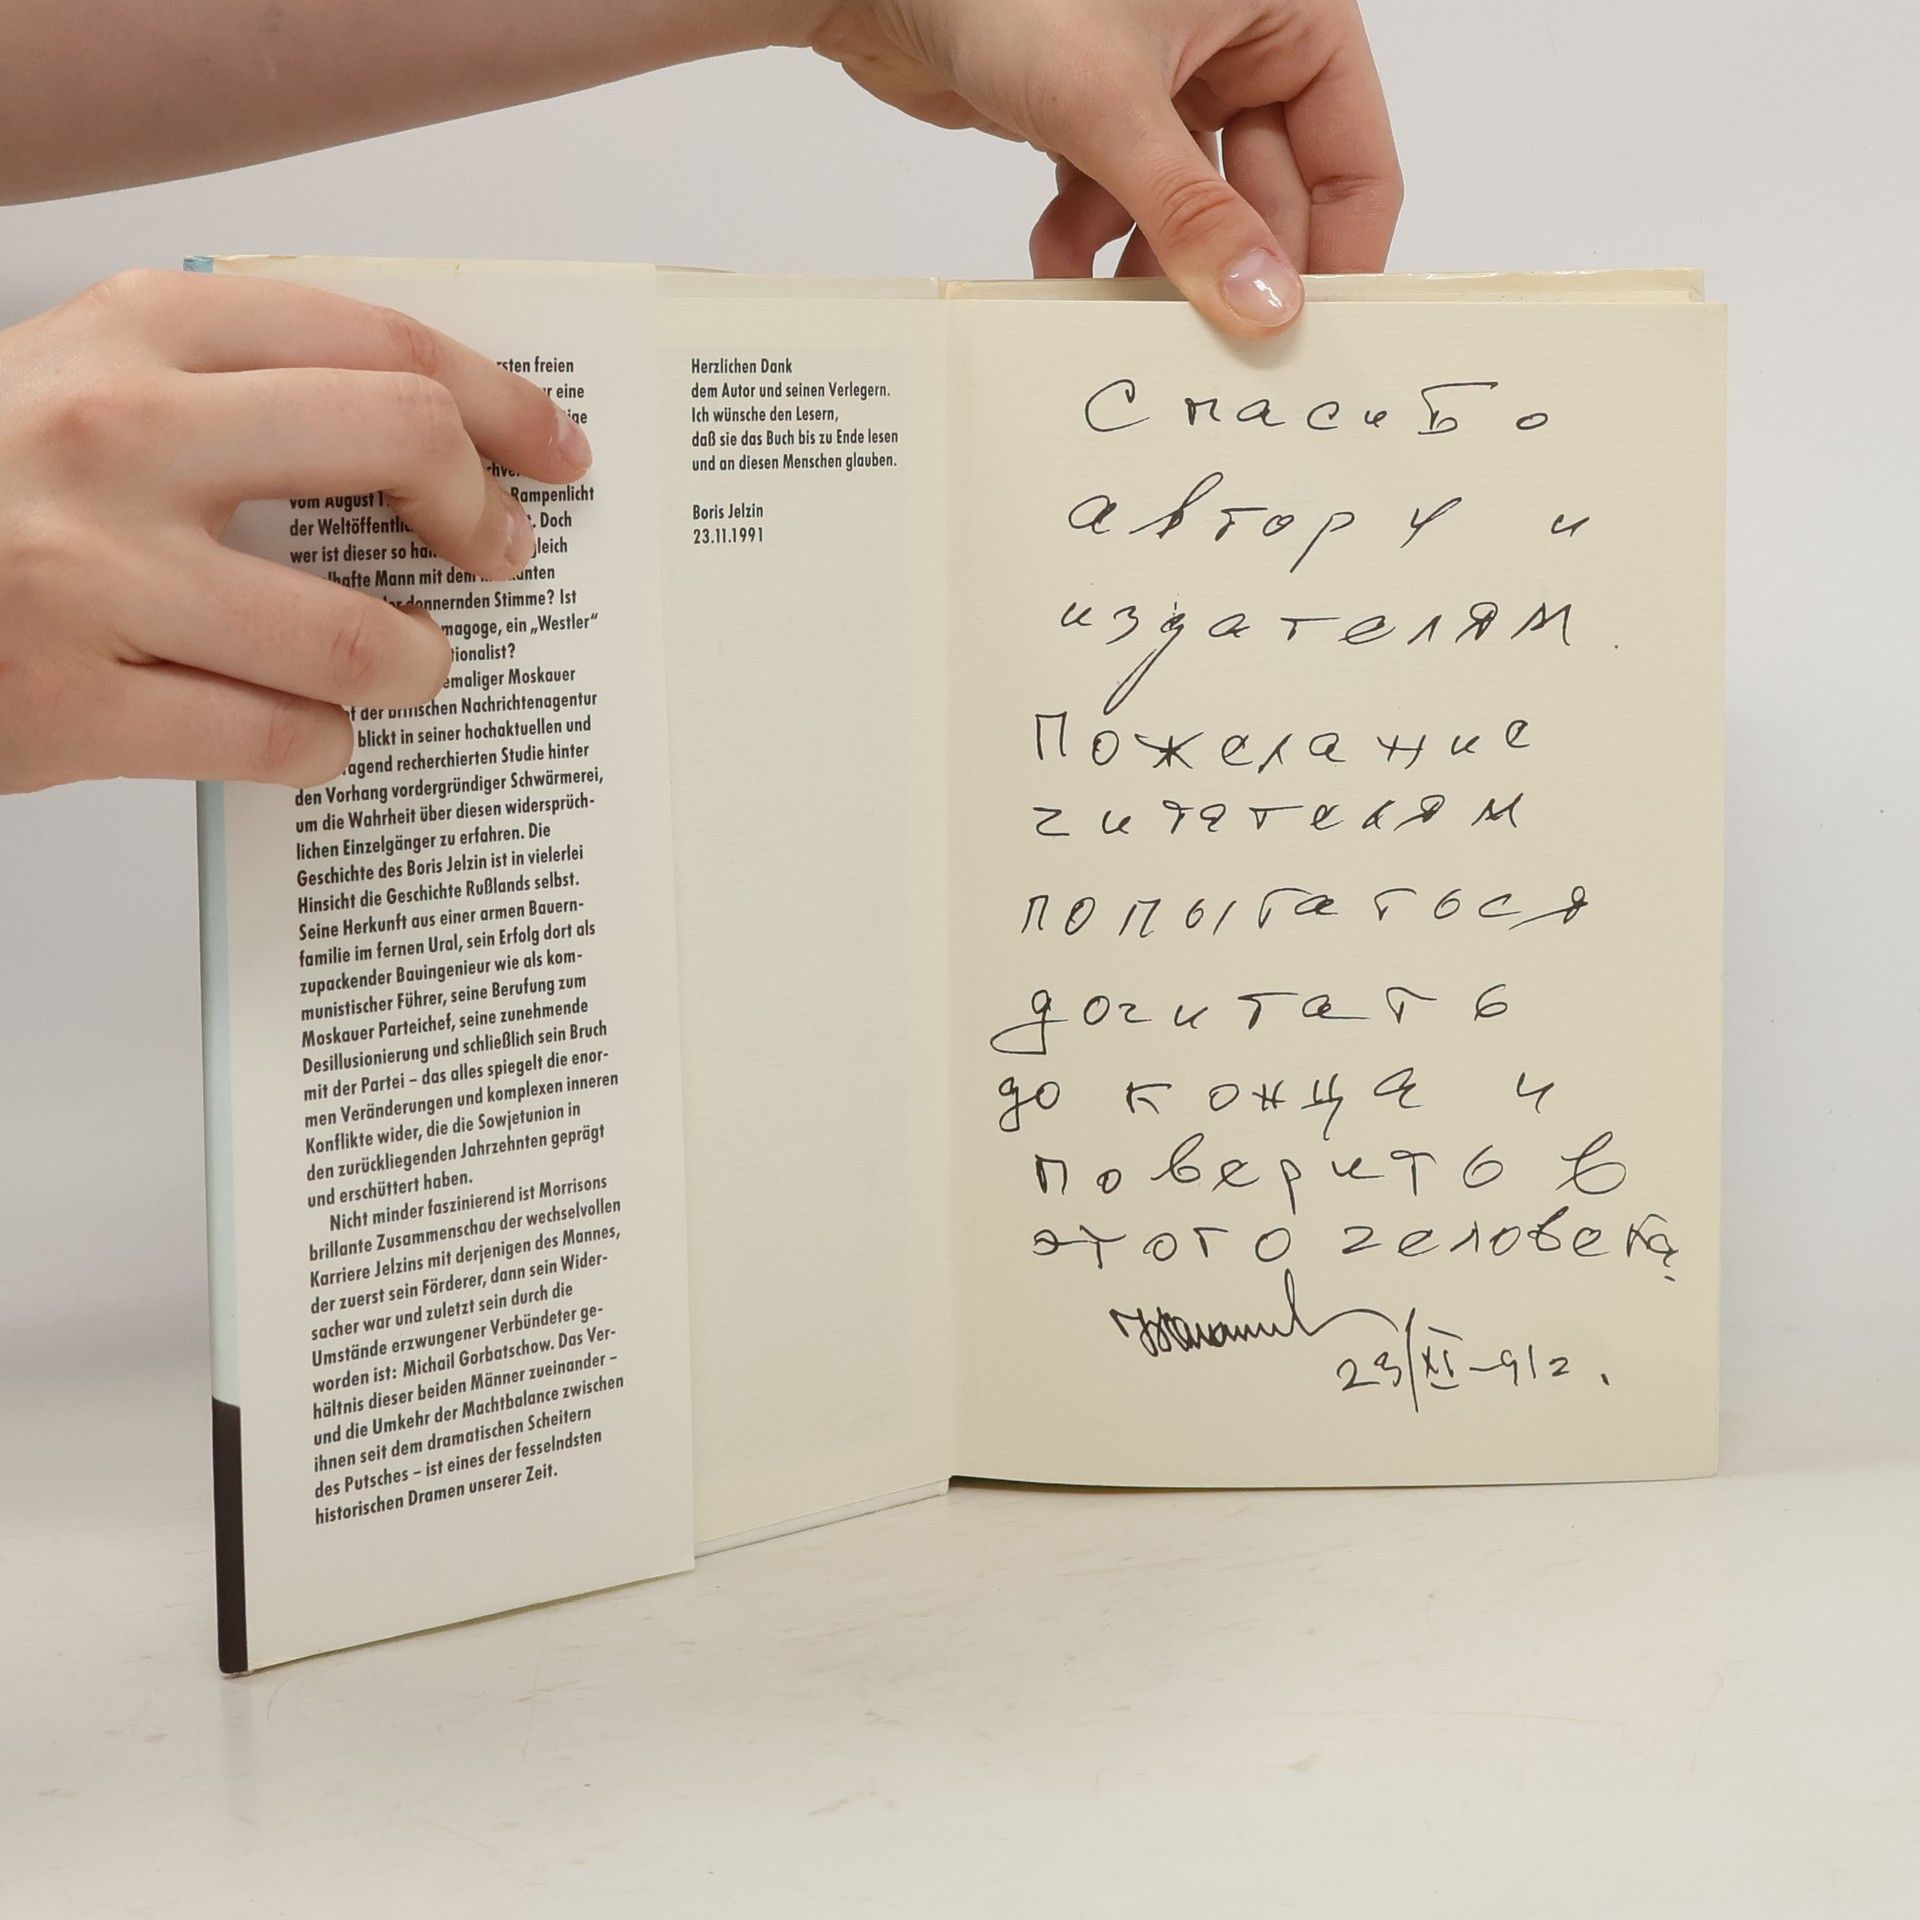 rsten freien
eine
ige
vom August 1 Rampenlicht
der Weltöffentli . Doch
wer ist dieser so ha gleich
lhafte Mann mit dem
donnernden Stimme? Ist
magoge, ein „Westler“
tionalist?
emaliger Moskauer
f der britischen Nachrichtenagentur
blickt in seiner hochaktuellen und
agend recherchierten Studie hinter
den Vorhang vordergründiger Schwärmerei,
um die Wahrheit über diesen widersprüch-
lichen Einzelgänger zu erfahren. Die
Geschichte des Boris Jelzin ist in vielerlei
Hinsicht die Geschichte Rußlands selbst.
Seine Herkunft aus einer armen Bauern-
familie im fernen Ural, sein Erfolg dort als
zupackender Bauingenieur wie als kom-
munistischer Führer, seine Berufung zum
Moskauer Parteichef, seine zunehmende
Desillusionierung und schließlich sein Bruch
mit der Partei – das alles spiegelt die enor-
men Veränderungen und komplexen inneren
Konflikte wider, die die Sowjetunion in
den zurückliegenden Jahrzehnten geprägt
und erschüttert haben.
Nicht minder faszinierend ist Morrisons
brillante Zusammenschau der wechselvollen
Karriere Jelzins mit derjenigen des Mannes,
der zuerst sein Förderer, dann sein Wider-
sacher war und zuletzt sein durch die
Umstände erzwungener Verbündeter ge-
worden ist: Michail Gorbatschow. Das Ver-
hältnis dieser beiden Männer zueinander –
und die Umkehr der Machtbalance zwischen
ihnen seit dem dramatischen Scheitern
des Putsches – ist eines der fesselndsten
historischen Dramen unserer Zeit.
Herzlichen Dank
dem Autor und seinen Verlegern.
Ich wünsche den Lesern,
daß sie das Buch bis zu Ende lesen
und an diesen Menschen glauben.
Boris Jelzin
23.11.1991
Спасибо
автору и
издателям.
Пожелание
читателям
попытаться
дочитать
до конца и
поверить в
этого человека.
23/XI-91г.